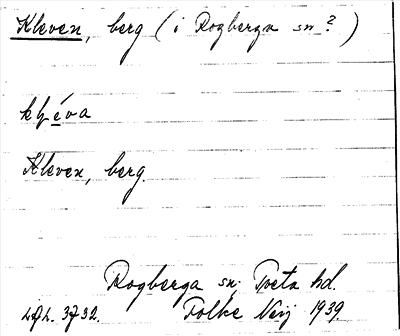 Kleven, berg (i Rogberga sn?)
kléva
Kleven, berg.
Rogberga sn, Tveta hd.
Folke Neij 1939.